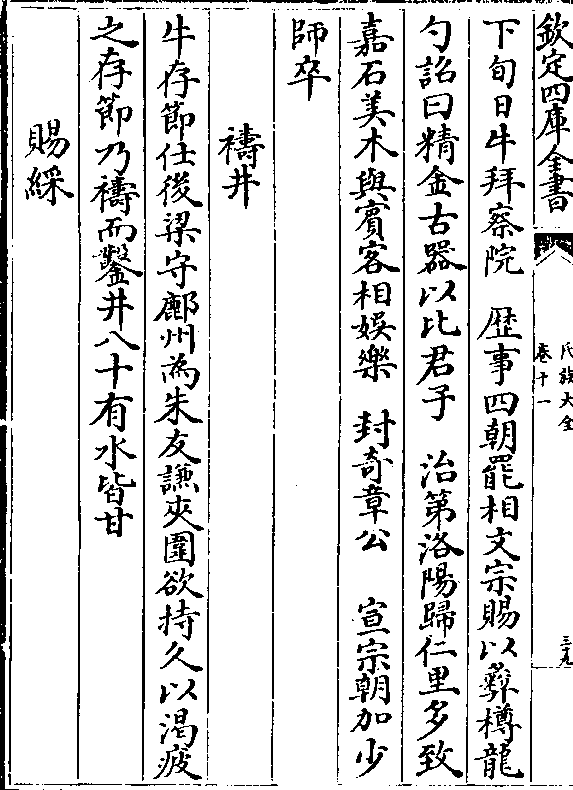 欽定四庫全書
氏族大全
卷十一
三九
下旬日牛拜察院　歴事四朝罷相文宗賜以彛樽龍
勺詔曰精金古器以比君子　治第洛陽歸仁里多致
嘉石美木與賓客相娯樂　封奇章公　宣宗朝加少
師卒
禱井
牛存節仕後梁守鄜州為朱友謙夾圍欲持久以渴疲
之存節乃禱而鑿井八十有水皆甘
賜綵